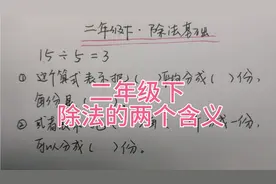 二年级下·除法意义
15÷5=3
① 这个算式表示把( )平均分成( )份,
每份是( )
二年级下
除法的两个含义
② 或者表示
一份,
可以分成( )份。